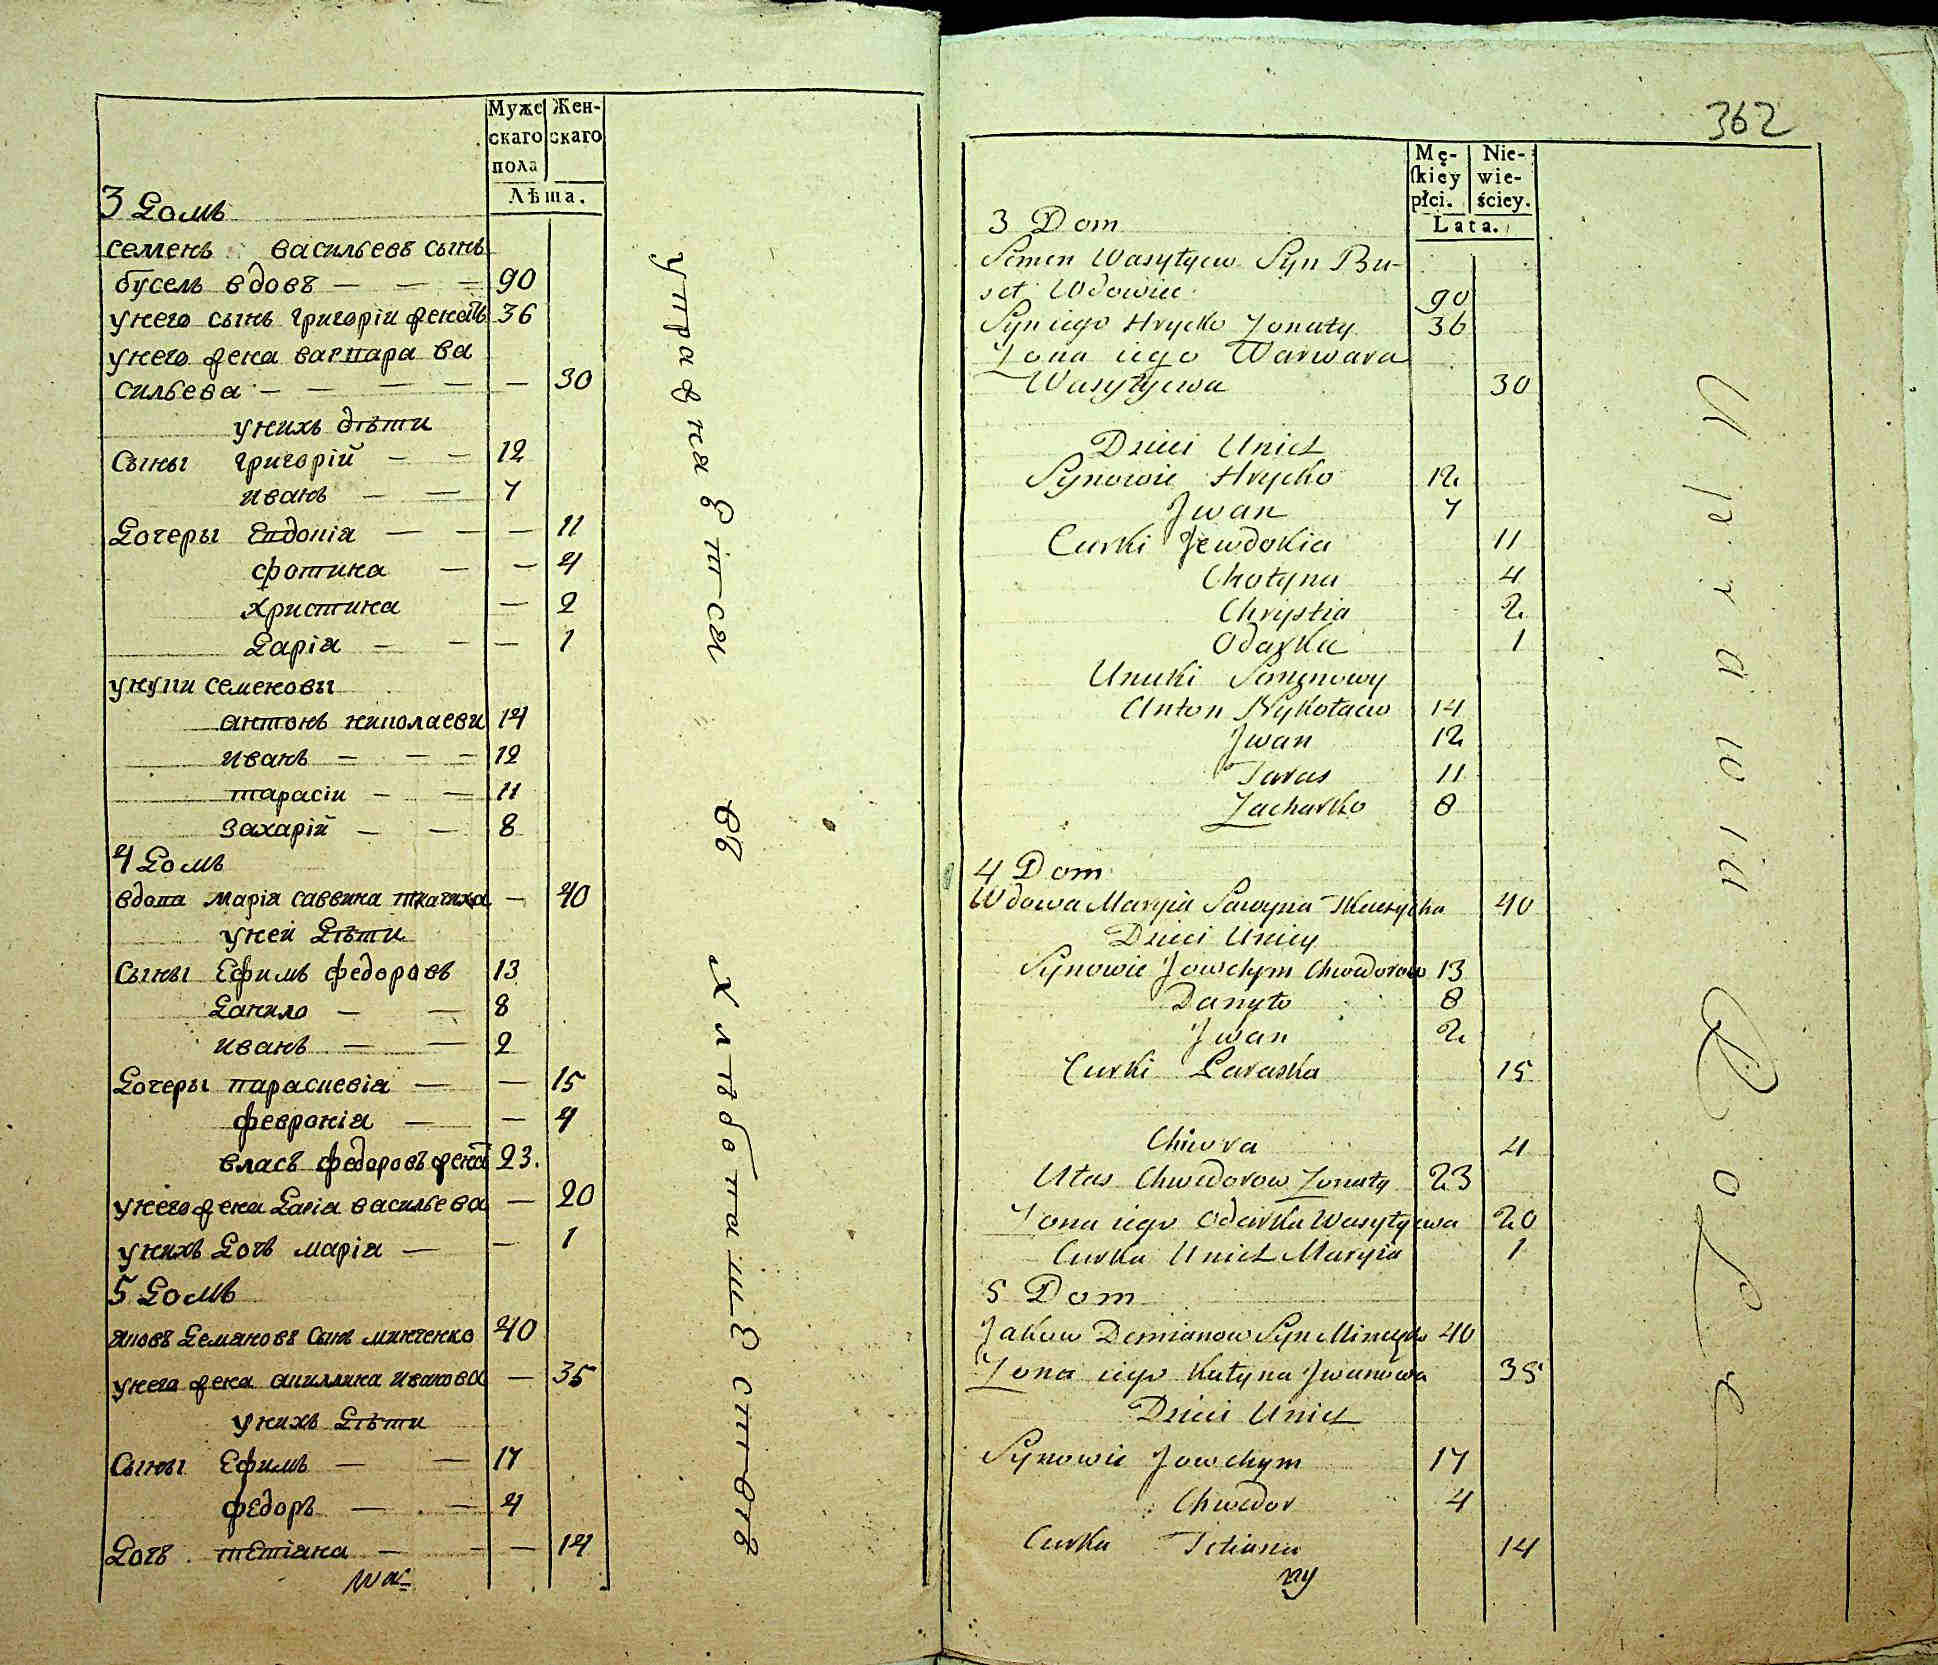 Муже Жен-
скаго скаго
пола
Лѣта.
3 Домъ
Семенъ васильевъ сынъ
бусель вдовъ — — — 90
унего сынъ григоріи женатъ 36
унего жена варвара ва
сильева — — — — — 30
унихъ дѣти
Сыны григорій — — 12
иванъ — — 7
Дочеры Евдокія — — — 11
фотина — — 4
христина — 2
Дарія — — — 1
унуки семеновы
антонъ николаеви 14
иванъ — — — 12
тарасіи — — 11
Захарій — — 8
4 Домъ
вдова марія саввина ткачиха — 40
уней Дѣти
Сыны Ефимъ федоровъ 13
Данило — — 8
иванъ — — 2
Дочеры параскевія — — 15
февронія — — 4
власъ федоровъ женат 23.
унего жена Дарія васильева — 20
унихъ Дочъ марія — — 1
5 Домъ
яковъ Демяновъ Сынъ минченко 40
унего жена акиллина иванова — 35
унихъ Дѣти
Сыны Ефимъ — — 17
федоръ — — 4
Дочъ тетіана — — — 14
упражняЕтся
въ
хлѣбопашЕствѣ
362
Mę- Nie-
skiey wie-
płci. ściey.
Lata.
3 Dom
Semen Wasylyew Syn Bu-
seł Wdowiec 90
Syn iego Hrycko Zonaty 36
Zona iego Warwara
Wasylyewa 30
Dzieci Unich
Synowie Hrycko 12
Jwan 7
Curki Jewdokia 11
Chotyna 4
Chrystia 2
Odarka 1
Unuki Semenowy
Anton Nykołaiw 14
Jwan 12
Taras 11
Zacharko 8
4 Dom
Wdowa Maryia Sawyna Tkaczycha 40
Dzieci Uniey
Synowie Jowchym Chwedorow 13
Danyło 8
Jwan 2
Curki Paraska 15
Chiwra 4
Ułas Chwedorow Zonaty 23
Zona iego Odarka Wasylyewa 20
Curka Unich Maryia 1
5 Dom
Jakow Demianow Syn Minczenko 40
Zona iego Kułyna Jwanowa 35
Dzieci Unich
Synowie Jowchym 17
Chwedor 4
Curka Tetiana 14
ny
Uprawia Rolę